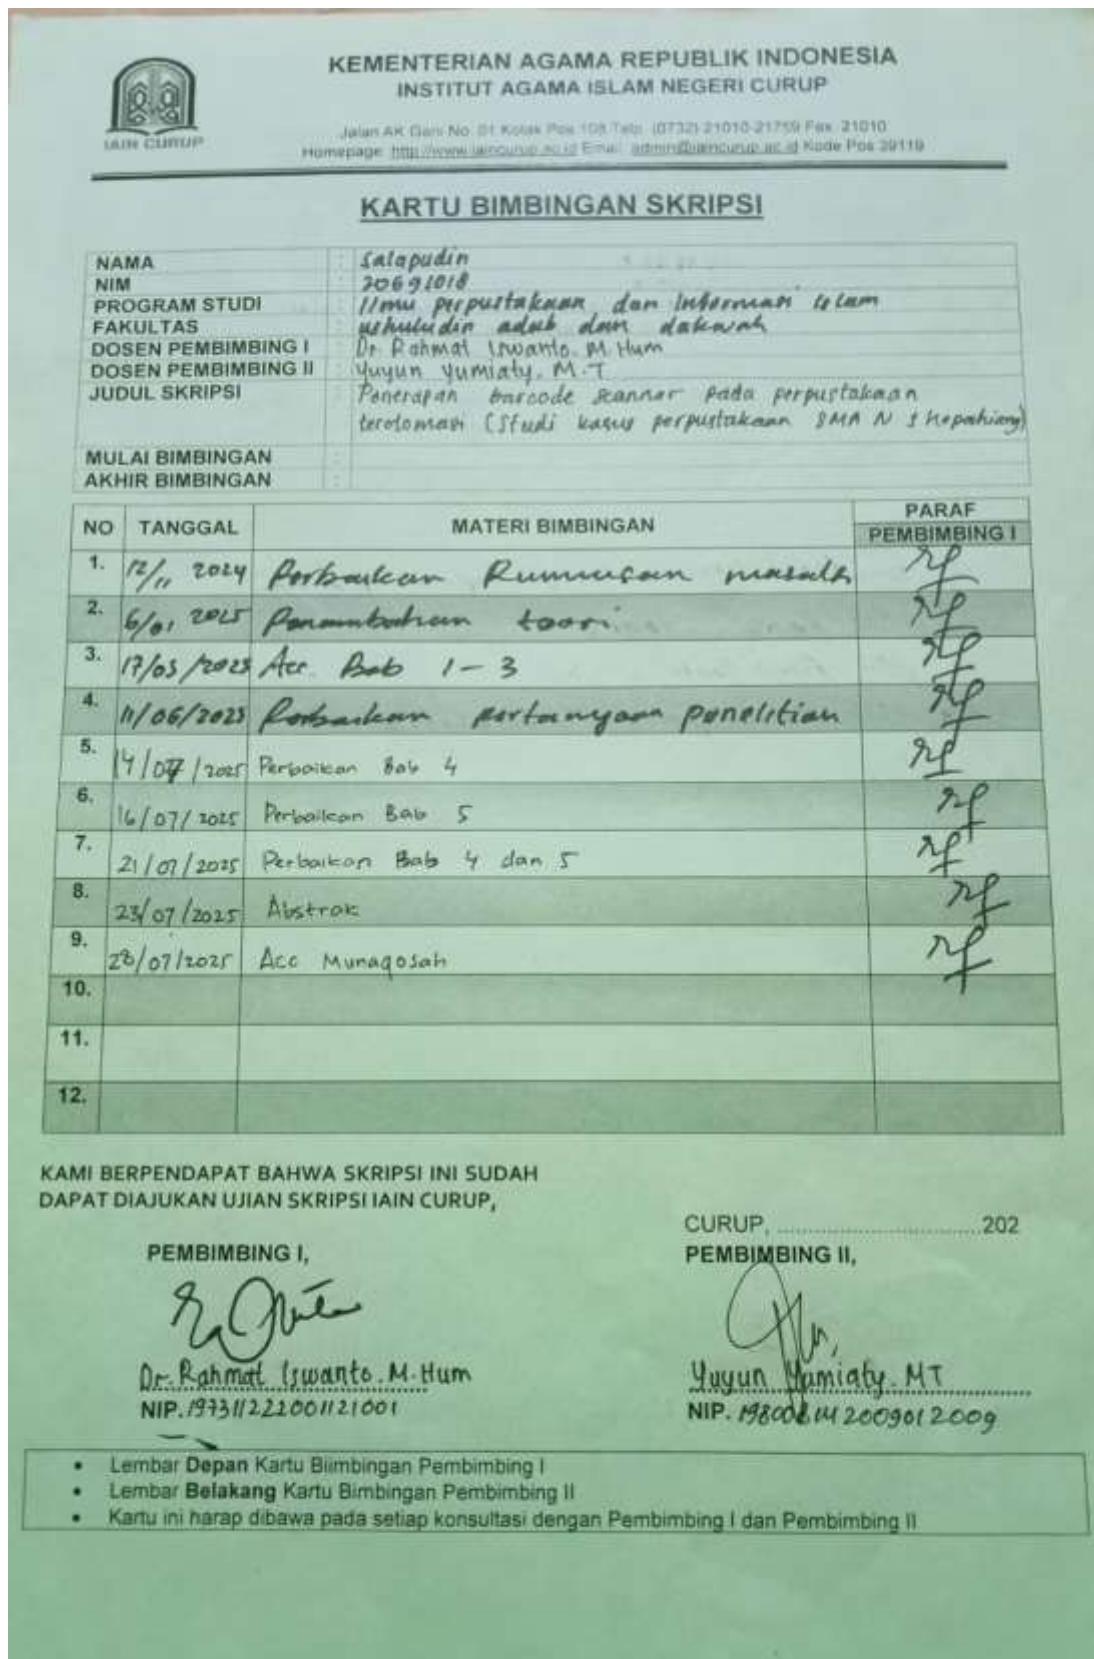 KEMENTERIAN AGAMA REPUBLIK INDONESIA
INSTITUT AGAMA ISLAM NEGERI CURUP
IAIN CURUP
Jalan AK Gani No. 01 Kotak Pos 108 Telp. (0732) 21010-21759 Fax. 21010
Homepage: http://www.iaincurup.ac.id Email: admin@iaincurup.ac.id Kode Pos 39119
KARTU BIMBINGAN SKRIPSI
NAMA : Salapudin
NIM : 20691018
PROGRAM STUDI : Ilmu perpustakaan dan Informasi Islam
FAKULTAS : ushuludin adab dan dakwah
DOSEN PEMBIMBING I : Dr. Rahmat Iswanto. M. Hum
DOSEN PEMBIMBING II : Yuyun Yumiaty. M.T
JUDUL SKRIPSI : Penerapan barcode scanner pada perpustakaan
terotomasi (Studi kasus perpustakaan SMA N 1 Kepahiang)
MULAI BIMBINGAN :
AKHIR BIMBINGAN :
NO TANGGAL MATERI BIMBINGAN PARAF
PEMBIMBING I
1. 12/11 2024 Perbaikan Rumusan masalah
2. 6/01 2025 Penambahan teori
3. 17/03/2025 Acc. Bab 1 - 3
4. 11/06/2025 Perbaikan pertanyaan penelitian
5. 14/07/2025 Perbaikan Bab 4
6. 16/07/2025 Perbaikan Bab 5
7. 21/07/2025 Perbaikan Bab 4 dan 5
8. 23/07/2025 Abstrak
9. 28/07/2025 Acc Munaqosah
10.
11.
12.
KAMI BERPENDAPAT BAHWA SKRIPSI INI SUDAH
DAPAT DIAJUKAN UJIAN SKRIPSI IAIN CURUP,
CURUP, ..............................202
PEMBIMBING I, PEMBIMBING II,
Dr. Rahmat Iswanto. M. Hum Yuyun Yumiaty. MT
NIP. 197311222001121001 NIP. 198008142009012009
• Lembar Depan Kartu Biimbingan Pembimbing I
• Lembar Belakang Kartu Bimbingan Pembimbing II
• Kartu ini harap dibawa pada setiap konsultasi dengan Pembimbing I dan Pembimbing II